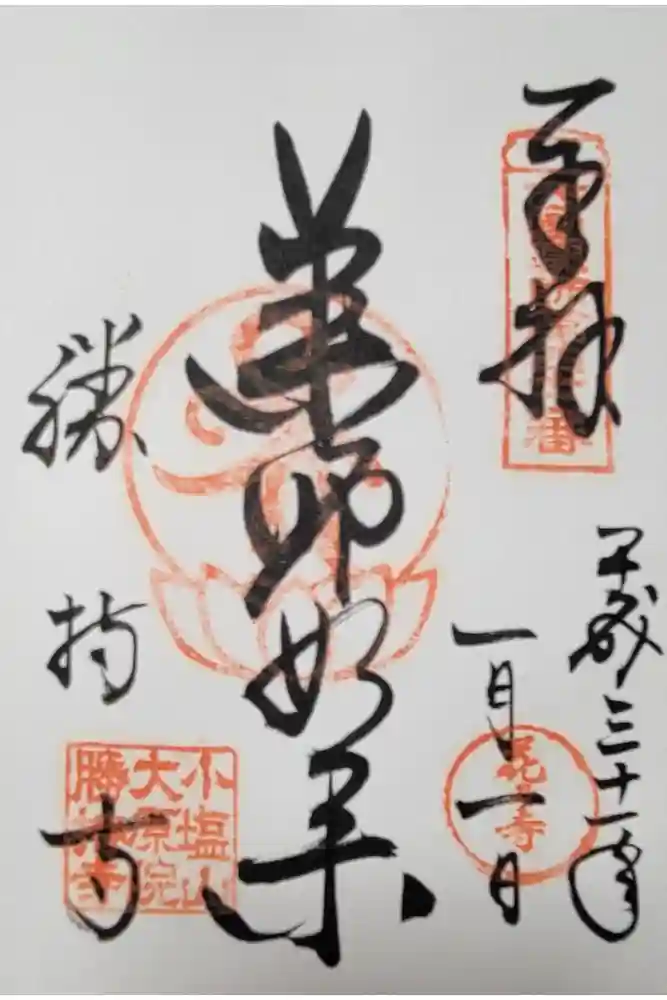 奉拝
番
平成三十一年
一月一日
花 寺
薬師如来
勝持寺
小塩山
大原院
勝持寺